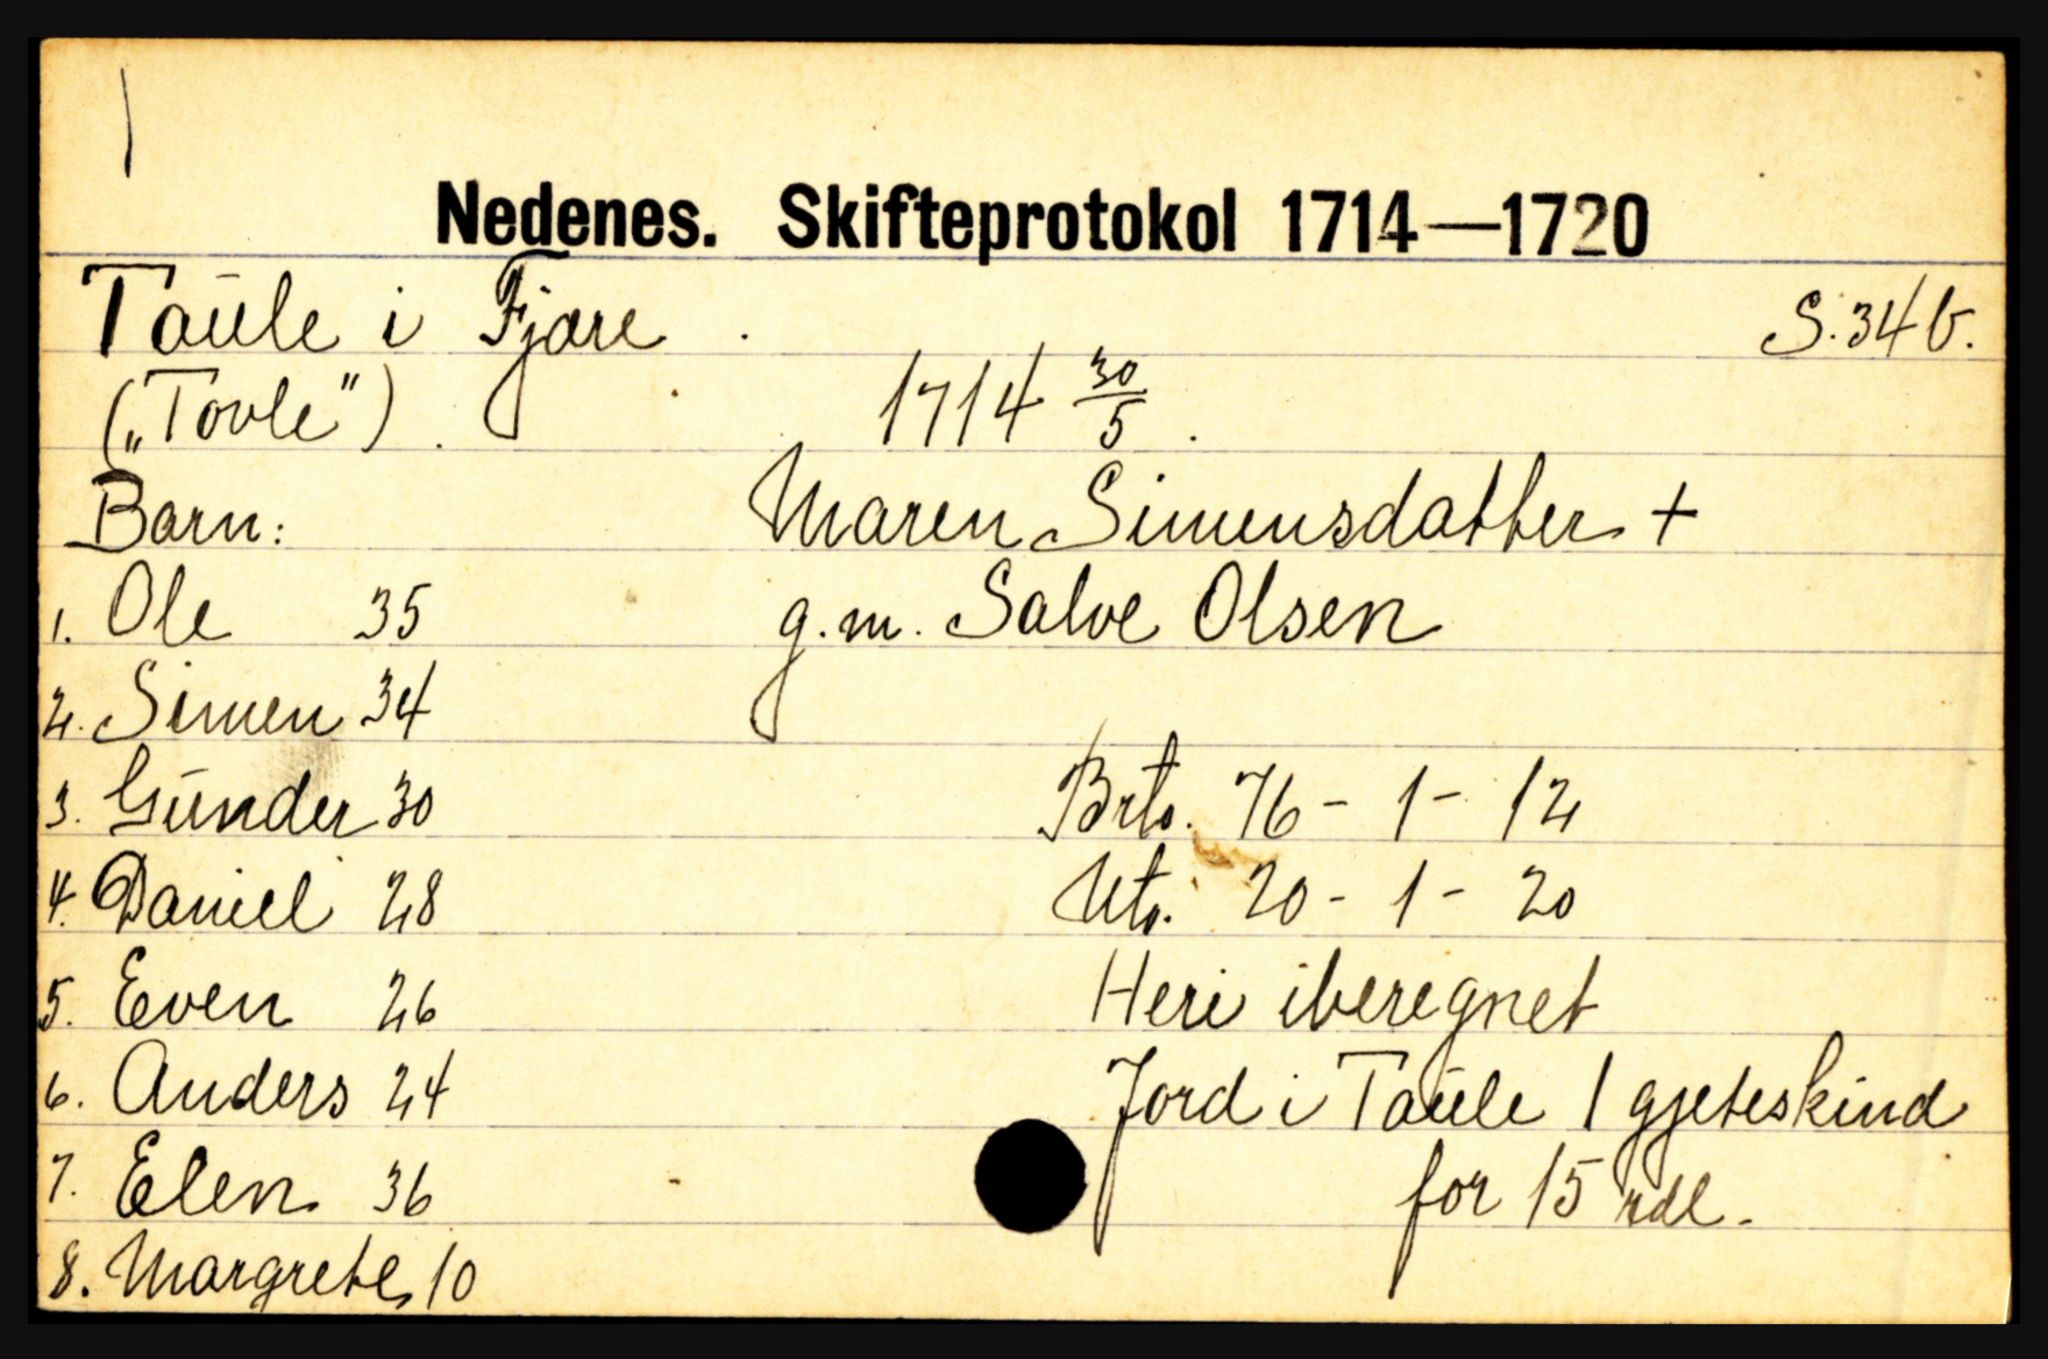 Nedenes. Skifteprotokol 1714—1720
Taule i Fjære . S. 34 b.
(„Tovle") . 1714 30/5 .
Barn: Maren Simensdatter +
1. Ole 35 g.m. Salve Olsen
2. Simen 34
3. Gunder 30 Brto. 76 - 1 - 12
4. Daniel 28 Nto. 20 - 1 - 20
5. Even 26 Heri iberegnet
6. Anders 24 Jord i Taule 1 gjeteskind
7. Elen 36 for 15 rdl.
8. Margrete 10